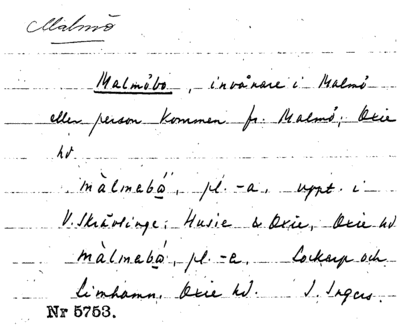 Malmö
Malmöbo, invånare i Malmö
eller person kommen fr. Malmö; Oxie
hd
màlmebá̤, pl. -a, uppt. i
V. Skrävlinge, Husie & Oxie, Oxie hd
màlmabá̤, pl. -a, Lockarp och
Limhamn, Oxie hd. I. Ingers
Nr 5753.